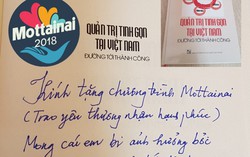 Mottainai
2018
QUẢN TRỊ TINH GỌN
TẠI VIỆT NAM
ĐƯỜNG TỚI THÀNH CÔNG
QUẢN TRỊ TINH GỌN
TẠI VIỆT NAM
ĐƯỜNG TỚI THÀNH CÔNG
Kính tặng chương trình Mottainai
(Trao yêu thương nhận hạnh phúc)
Mong các em bị ảnh hưởng bởi